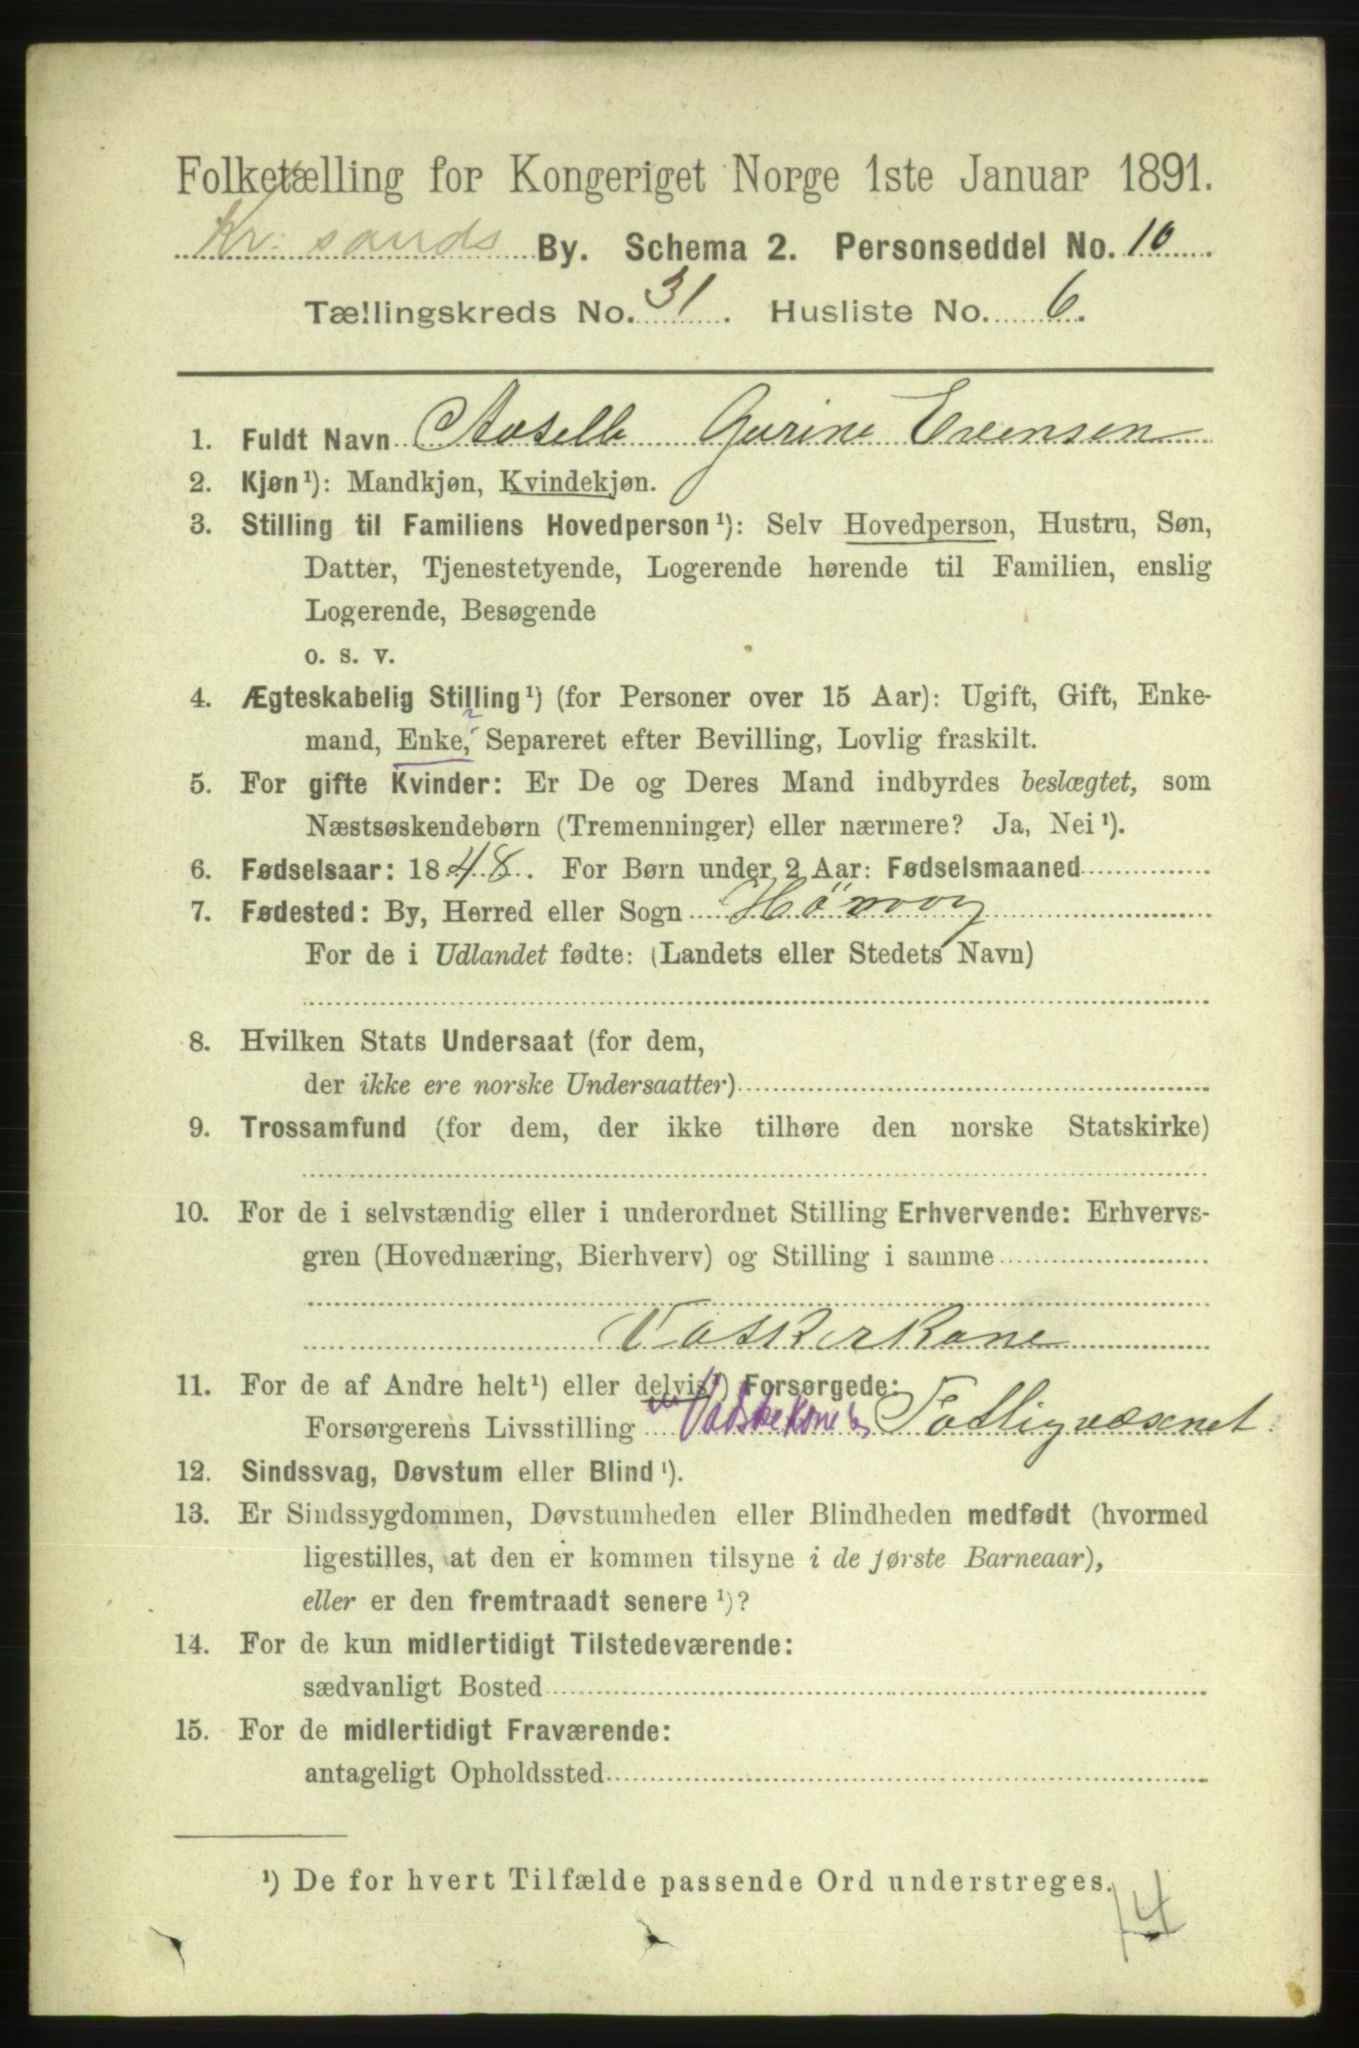 Folketælling for Kongeriget Norge 1ste Januar 1891.
Kr. sands By. Schema 2. Personseddel No. 10
Tællingskreds No. 31. Husliste No. 6.
1. Fuldt Navn Aaselle Gurine Evensen
2. Kjøn¹): Mandkjøn, Kvindekjøn.
3. Stilling til Familiens Hovedperson¹): Selv Hovedperson, Hustru, Søn,
Datter, Tjenestetyende, Logerende hørende til Familien, enslig
Logerende, Besøgende
o. s. v.
4. Ægteskabelig Stilling¹) (for Personer over 15 Aar): Ugift, Gift, Enke-
mand, Enke, Separeret efter Bevilling, Lovlig fraskilt.
5. For gifte Kvinder: Er De og Deres Mand indbyrdes beslægtet, som
Næstsøskendebørn (Tremenninger) eller nærmere? Ja, Nei¹).
6. Fødselsaar: 1848. For Børn under 2 Aar: Fødselsmaaned
7. Fødested: By, Herred eller Sogn Hövaag
For de i Udlandet fødte: (Landets eller Stedets Navn)
8. Hvilken Stats Undersaat (for dem,
der ikke ere norske Undersaatter)
9. Trossamfund (for dem, der ikke tilhøre den norske Statskirke)
10. For de i selvstændig eller i underordnet Stilling Erhvervende: Erhvervs-
gren (Hovednæring, Bierhverv) og Stilling i samme
Vaskerkone
11. For de af Andre helt¹) eller delvis¹) Forsørgede:
Forsørgerens Livsstilling Vaskekone Fattigvæsenet.
12. Sindssvag, Døvstum eller Blind¹).
13. Er Sindssygdommen, Døvstumheden eller Blindheden medfødt (hvormed
ligestilles, at den er kommen tilsyne i de første Barneaar),
eller er den fremtraadt senere¹)?
14. For de kun midlertidigt Tilstedeværende:
sædvanligt Bosted
15. For de midlertidigt Fraværende:
antageligt Opholdssted
¹) De for hvert Tilfælde passende Ord understreges.
14